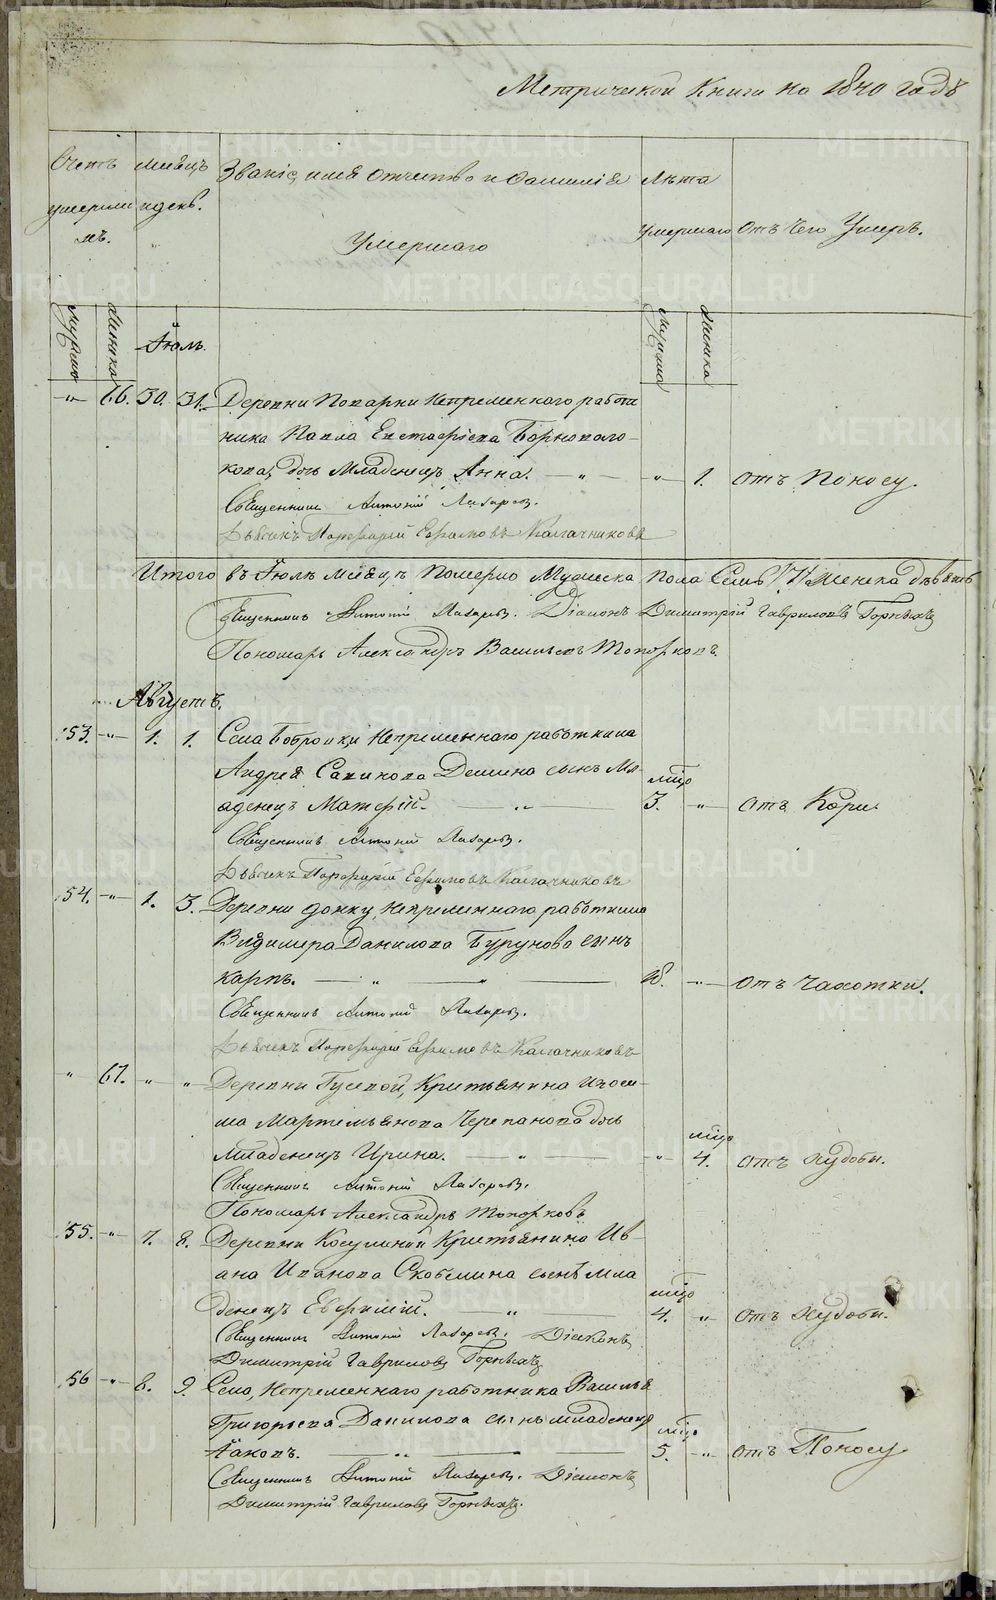 Метрической Книги на 1840 годъ
Счетъ умершимъ.
Мѣсяцъ и день.
Званіе, имя отчество и фамилія Умершаго
Лѣта умершаго
отъ чего Умеръ.
Мужеска
Женска
Мужеска
Женска
Іюль.
" 66. 30. 31. Деревни Поварни Непременнаго работ
ника Павла Евстафіева
дочь Младенецъ Анна. " " 1. отъ Поносу.
Священникъ Антоній Лазаревъ.
Дьячекъ Порфирій Ефимовъ Калачниковъ
Итого въ Іюлѣ мѣсяцѣ Померло Мужеска пола Семь /7/ Женска девять
Священникъ Антоній Лазаревъ. Діаконъ Димитрій Гавриловъ
Пономарь Александръ Васильевъ Топорковъ.
Августъ.
53. " 1. 1. Села Бобровки Непременнаго работника
Андрея Савинова Демина сынъ Мла
денецъ Матфій. " мѣс 3. " отъ Кори.
Священникъ Антоній Лазаревъ.
Дьячекъ Порфирій Ефимовъ Калачниковъ
54. " 1. 3. Деревни непременнаго работника
Владимера Данилова Бурунова сынъ
Карпъ. " " 18. " отъ Чахотки.
Священникъ Антоній Лазаревъ.
Дьячекъ Порфирій Ефимовъ Калачниковъ
" 67. " " Деревни Гусевой, Крестьянина
Мартемьянова Черепанова дочь
младенецъ Ирина. " " мѣс 4. отъ худобы.
Священникъ Антоній Лазаревъ.
Пономарь Александръ Топорковъ
55. " 7. 8. Деревни Косулиной Крестьянина Ив
ана Иванова Скобелина сынъ мла
денецъ Евфимій. " мѣс 4. " отъ худобы.
Священникъ Антоній Лазаревъ. Діаконъ
Димитрій Гавриловъ
56 " 8. 9. Села, Непременнаго работника Василья
Григорьева Данилова сынъ младенецъ
Іаковъ. " " мѣс 5. " отъ Поносу
Священникъ Антоній Лазаревъ. Діаконъ
Димитрій Гавриловъ
METRIKI.GASO-URAL.RU